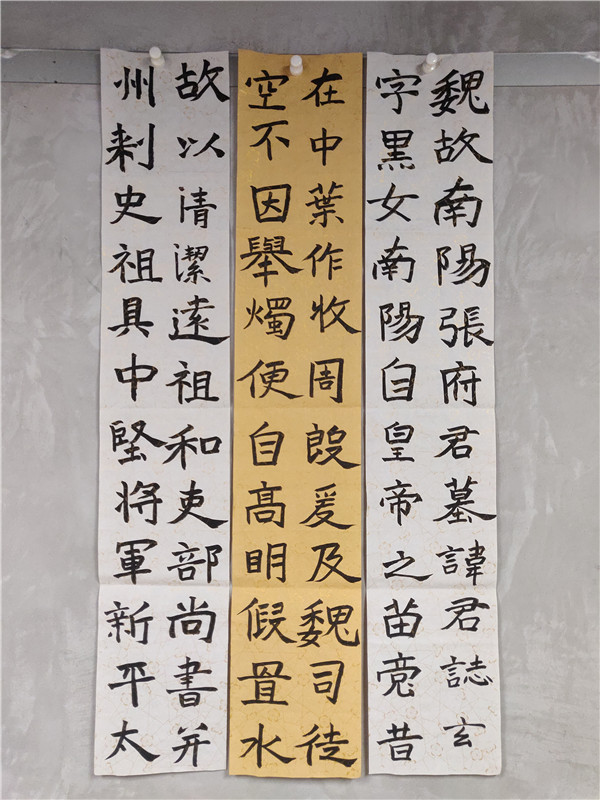 魏故南陽張府君墓諱君誌玄
字黑女南陽自皇帝之苗裔昔
在中葉作牧周殷爰及魏司徒
空不因舉燭便自高明假置水
故以清潔遠祖和吏部尚書并
州刺史祖具中堅將軍新平太